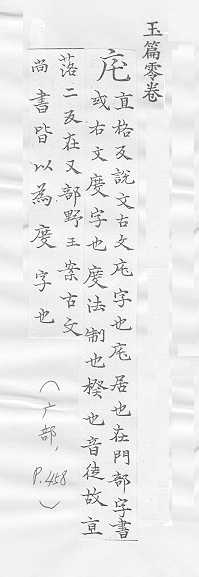 玉篇零卷
㡯直格反說文古文㡯字也㡯居也在門部字書
或右文度字也度法制也揆也音徒故亶
落二反在又部野王案古文
尚書皆以為度字也
(广部, P.458)